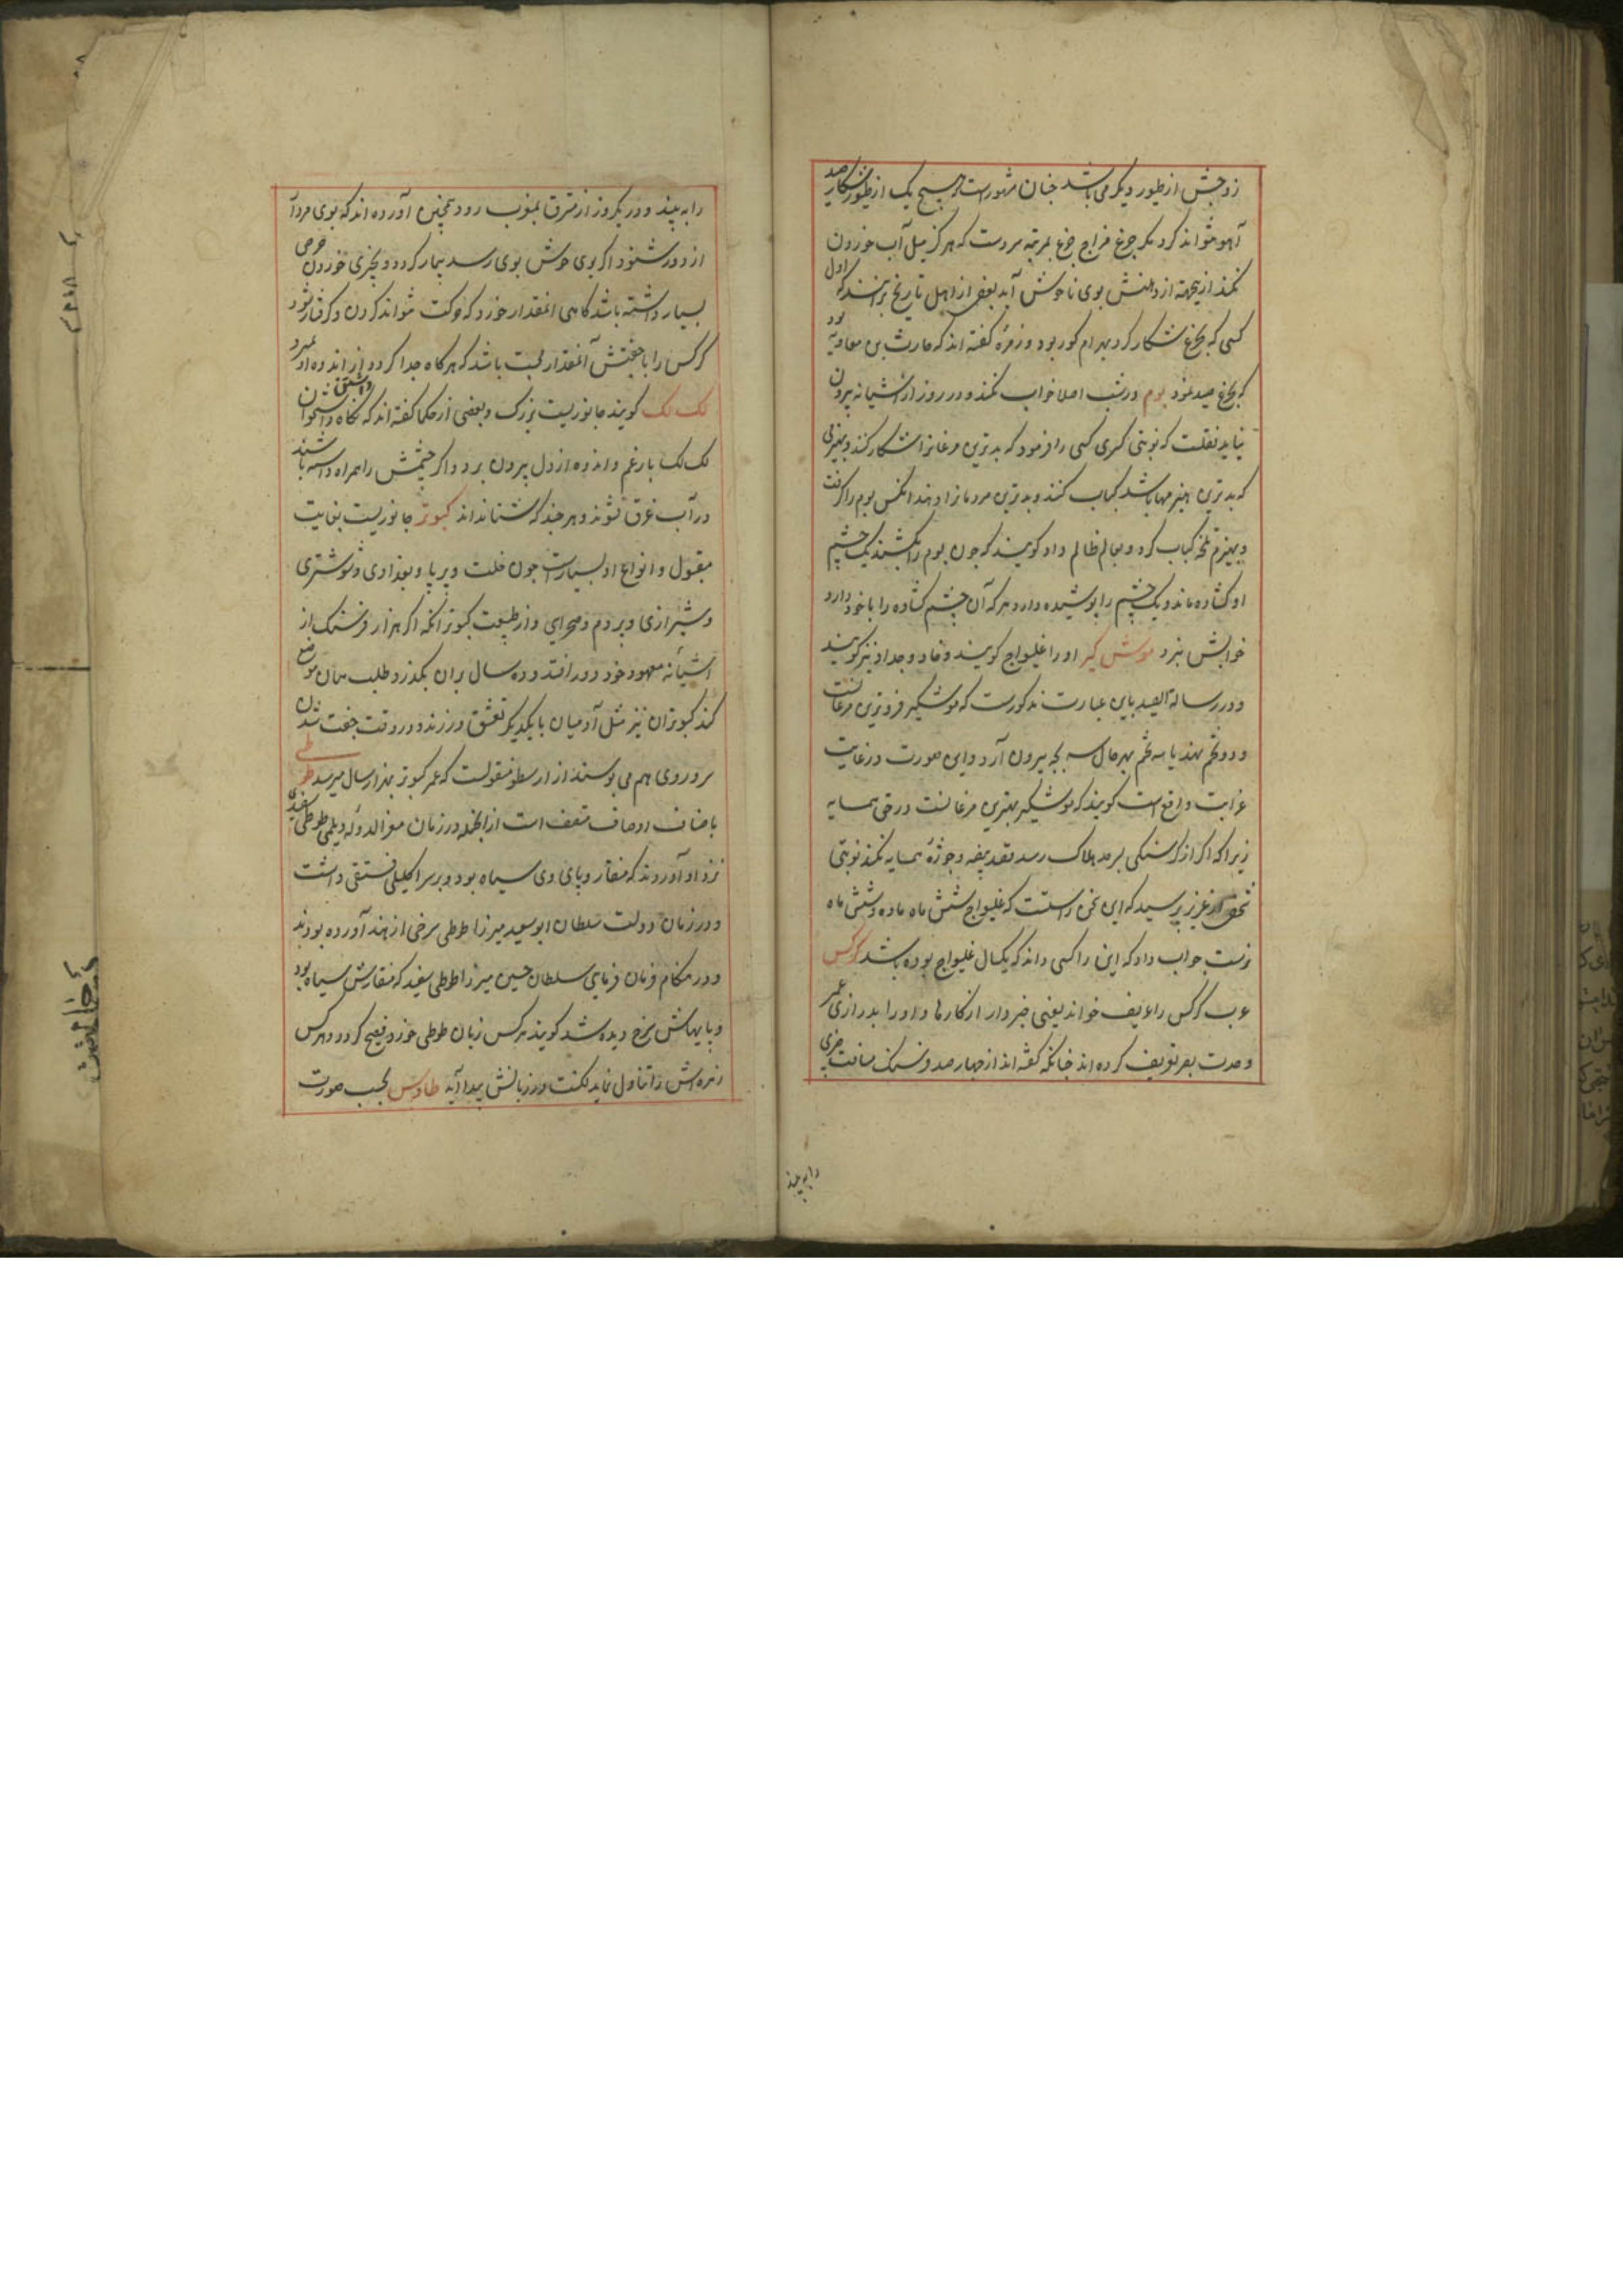 زوجش از طیور دیگر می باشد چنان مشهورست که هیچ یک از طیور شکاری صید
آهو نتواند کرد مگر چرغ مزاج چرغ بمرتبه سردست که هرگز میل آب خوردن
نکند ازینجهة از دهنش بوی ناخوش آید بعضی از اهل تاریخ برانند که اول
کسی که بچرغ شکار کرد بهرام کور بود و زمرهٔ گفته اند که حارث بن معاویه بود
که بچرغ صید نمود بوم در شب اصلا خواب نکند و در روز از آشیانه بیرون
نیاید نقلست که نوبتی کسری کسی را فرمود که بدترین مرغانرا شکار کند و بهیزمی
که بدترین هیزمها باشد کباب کند و بدترین مردمانرا دهد آنکس بوم را گرفت
و بهیزم کباب کرد و بعالم ظالم داد کویند که چون بوم را بکشند یک چشم
او کشاده ماند و یک چشم را پوشیده دارد هر که آن چشم کشاده را با خود دارد
خوابش نبرد موش گیر او را غلیواج کویند و خاد و جداد نیز کویند
و در رسالة الصید باین عبارت مذکورست که موشگیر فروترین مرغانست
و دو تخم نهد یا سه تخم بهر حال سه بچه بیرون آرد و این صورت در غایت
غرابت واقع است کویند که موشگیر بهترین مرغانست در حق همسایه
زیرا که اگر از گرسنگی بسرحد هلاک رسد قصد بیضه و جوزهٔ همسایه نکند نوبتی
شخصی از عزیزی پرسید که این سخن راستست که غلیواج شش ماه ماده و شش ماه
نرست جواب داد که این را کسی داند که یکسال غلیواج بوده باشد کرکس
عرب کرکس را عریف خواند یعنی خبردار از کارها و او را بدرازی عمر
و حدت بصر تعریف کرده اند چنانکه گفته اند از چهار صد فرسنگ مسافت چیزی
را به بیند
را به بیند و در یکروز از مشرق بمغرب رود همچنین آورده اند که بوی مردار
از دور شنود اگر بوی خوش بوی رسد بیمار گردد و بچیزی خوردن حرص
بسیار داشته باشد گاهی انمقدار خورد که حرکت نتواند کردن و گرفتار شود
کرکس را با جفتش آنمقدار محبت باشد که هر گاه جدا گردد از اندوه او بمیرد
لک لک کویند جانوریست بزرک و بعضی از حکما گفته اند که نگاه داشتن استخوان
لک لک بار غم و اندوه از دل بیرون برد و اگر چشمش را همراه داشته باشند
در آب غرق نشوند و هر چند که شنا ندانند کبوتر جانوریست بغایت
مقبول و انواع او بسیارست چون خلت و پرپا و بغدادی و شوشتری
و شیرازی و بردم و صحرایی و از طبیعت کبوتر آنکه اگر هزار فرسنک از
آشیانهٔ معهود خود دور افتد و ده سال بران بگذرد طلب همان موضع
کند کبوتران نیز مثل آدمیان با یکدیگر تعشق ورزند و در وقت جفت شدن
سر و روی هم می بوسند از ارسطو منقولست که عمر کبوتر بهزار سال میرسد طوطی
باصناف اوصاف متصف است از انجمله در زمان معزالدوله دیلمی طوطی سفیدی
نزد او آوردند که منقار و پای وی سیاه بود و بر سر اکلیلی فستقی داشت
و در زمان دولت سلطان ابو سعید میرزا طوطی سرخی از هند آورده بودند
و در هنکام فرمان فرمایی سلطان حسین میرزا طوطی سفید که منقارش سیاه بود
و پایهاش سرخ دیده شد کویند هر کس زبان طوطی خورد فصیح گردد و هر کس
زهره اش را تناول نماید لکنت در زبانش پیدا آید طاوس بحسب صورت